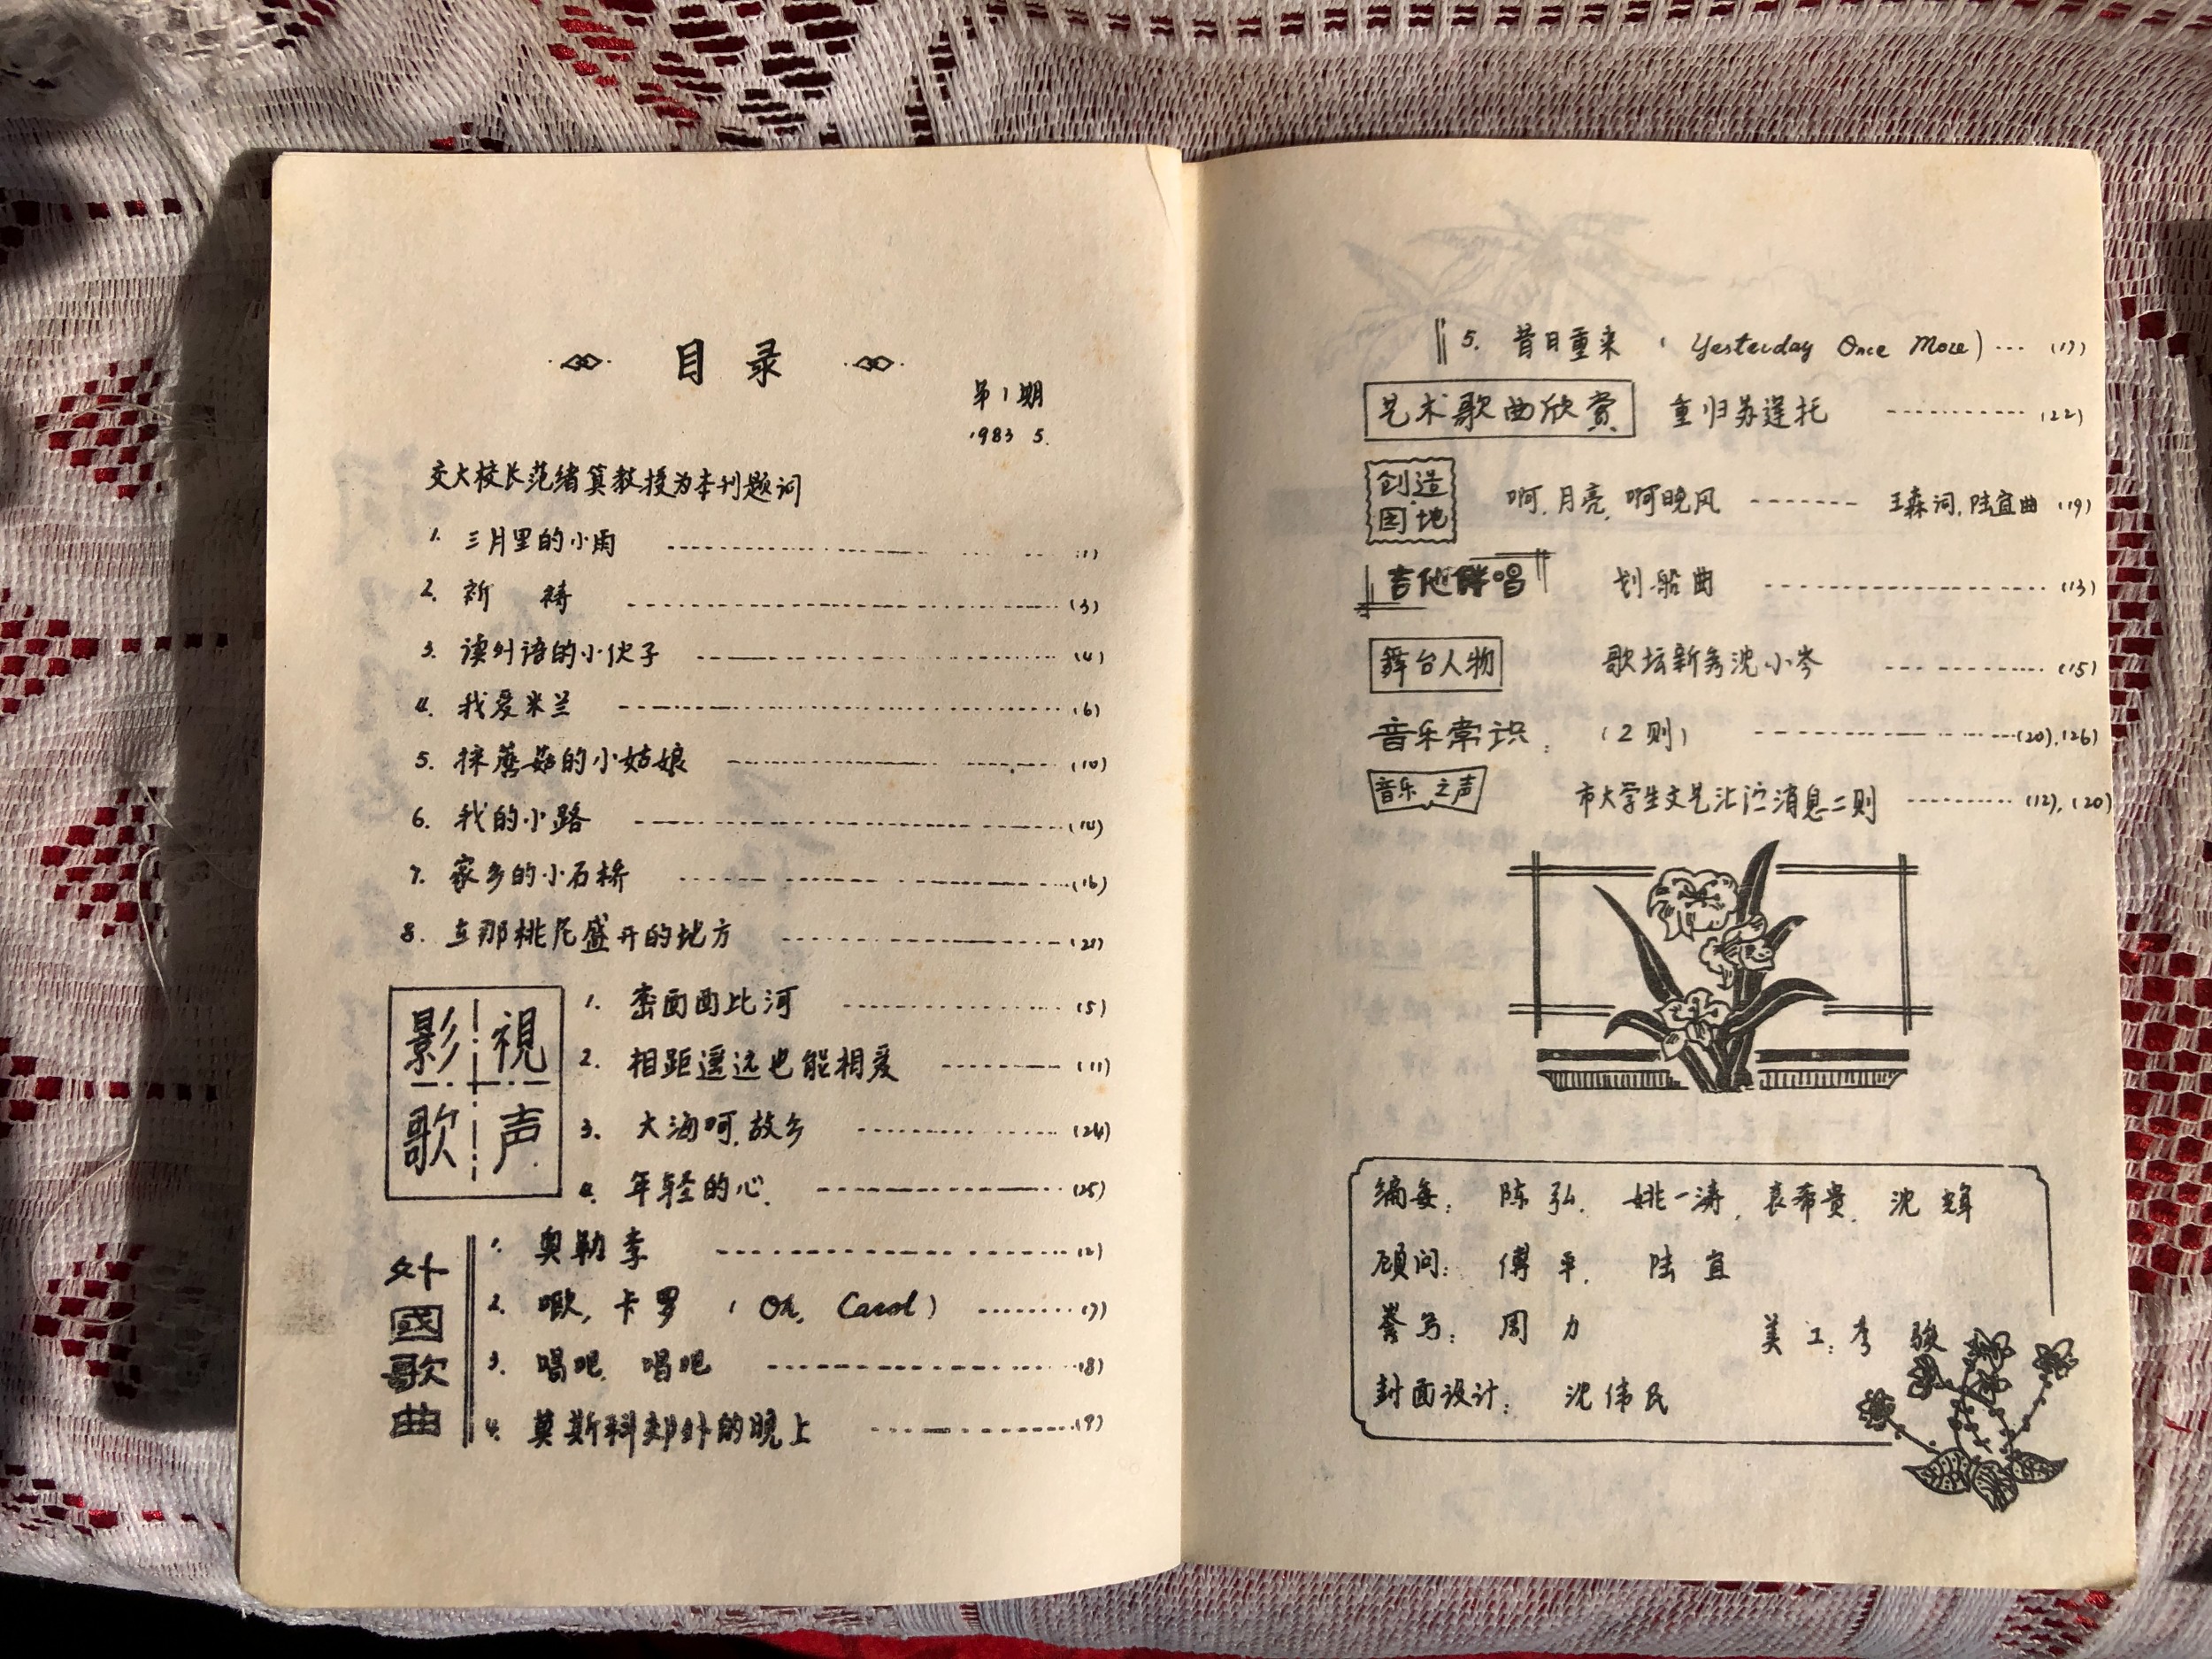 目录
第1期
1983 5.
交大校长范绪箕教授为本刊题词
1. 三月里的小雨 (1)
2. 祈祷 (3)
3. 读外语的小伙子 (4)
4. 我爱米兰 (6)
5. 採蘑菇的小姑娘 (10)
6. 我的小路 (14)
7. 家乡的小石桥 (16)
8. 在那桃花盛开的地方 (21)
影视歌声
1. 密西西比河 (5)
2. 相距遥远也能相爱 (11)
3. 大海呵,故乡 (24)
4. 年轻的心. (25)
外國歌曲
1. 奥勒李 (2)
2. 噢,卡罗 (Oh, Carol) (7)
3. 唱吧 唱吧 (8)
4. 莫斯科郊外的晚上 (9)
5. 昔日重来 (Yesterday Once More) (17)
艺术歌曲欣赏 重归苏莲托 (22)
创造园地 啊,月亮,啊晚风 王森词,陆宜曲 (19)
吉他伴唱 划船曲 (13)
舞台人物 歌坛新秀沈小岑 (15)
音乐常识: (2则) (20),(26)
音乐之声 市大学生文艺汇演消息二则 (12),(20)
编委: 陈弘, 姚一涛, 袁希贵, 沈辉
顾问: 傅平, 陆宜
誊写: 周力 美工: 李骏
封面设计: 沈伟民